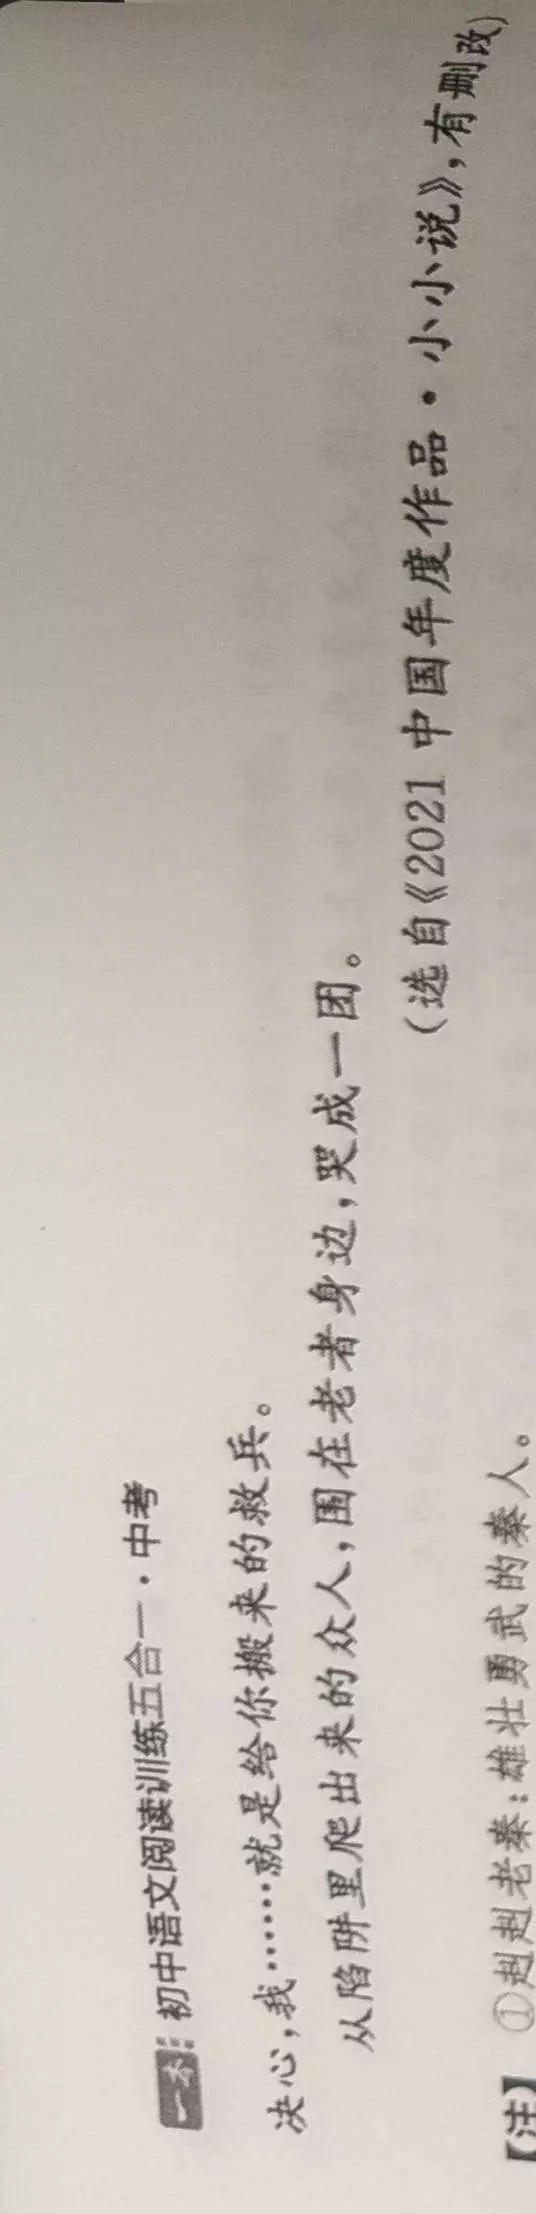 一本 初中语文阅读训练五合一·中考
决心,我……就是给你搬来的救兵。
从陷阱里爬出来的众人,围在老者身边,哭成一团。
(选自《2021 中国年度作品·小小说》,有删改)
【注】 ①赳赳老秦:雄壮勇武的秦人。